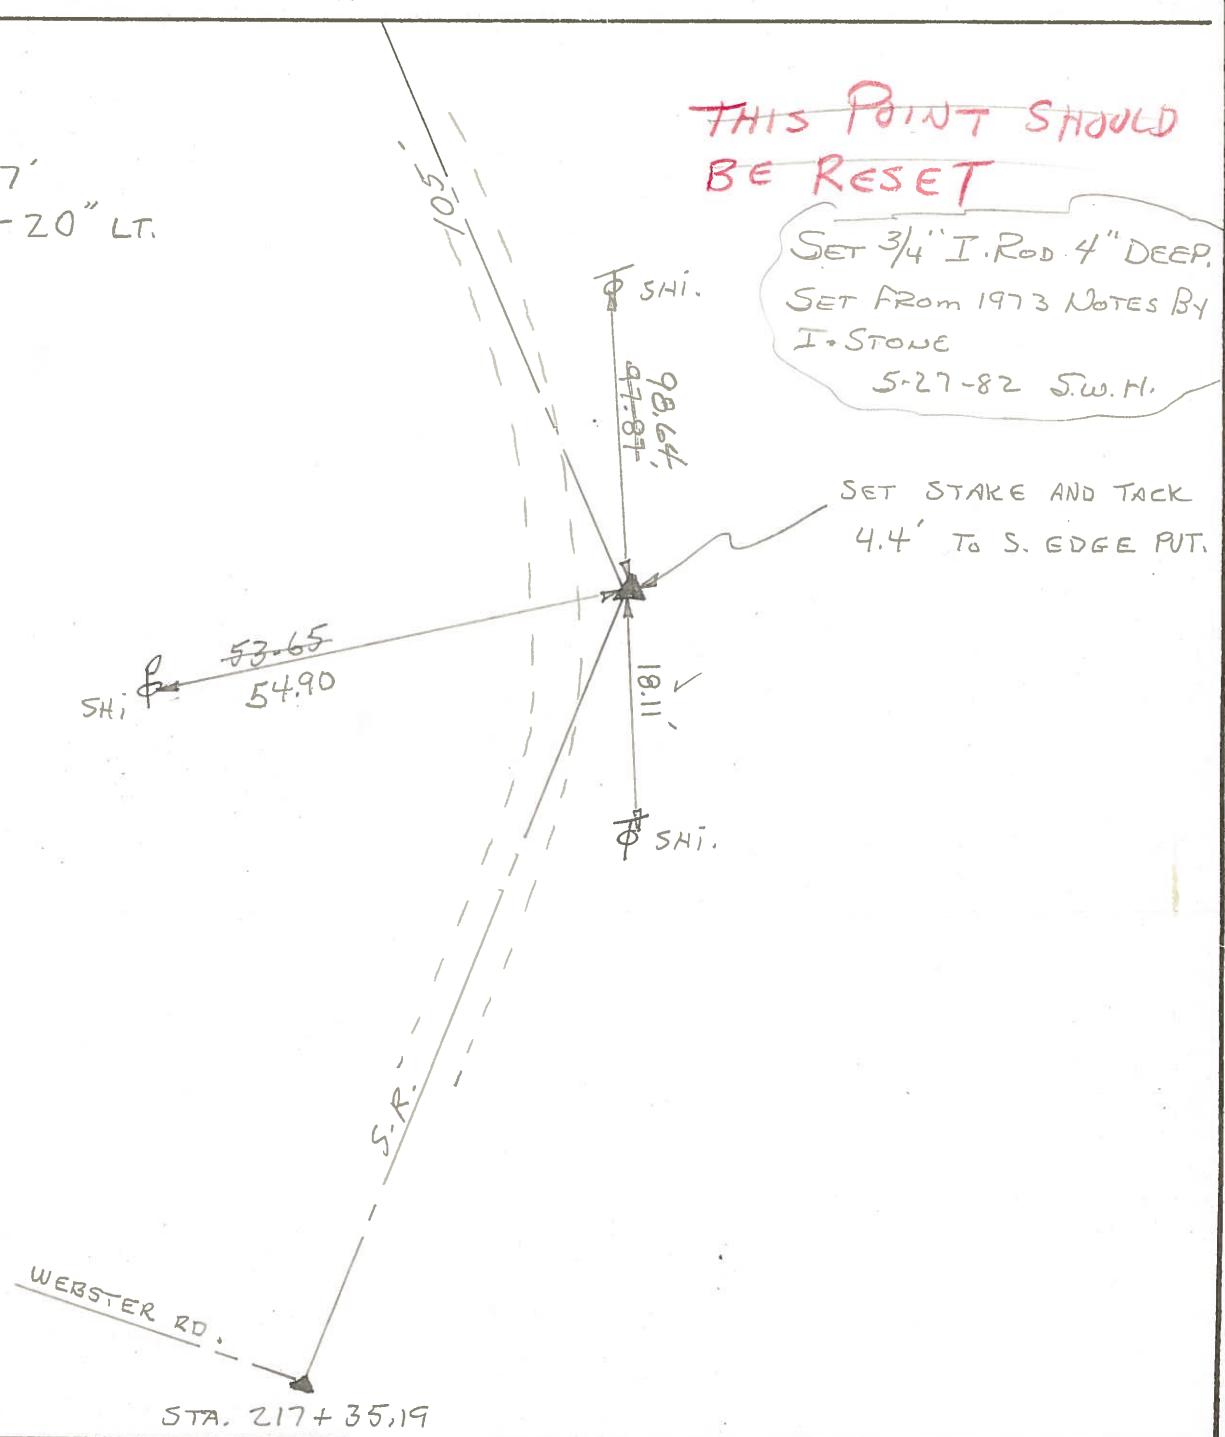 THIS POINT SHOULD
BE RESET
7'
-20" LT.
105
SET 3/4" I. ROD 4" DEEP.
SET FROM 1973 NOTES BY
I. STONE
5-27-82 S.W.H.
SHi.
98.64'
97.87
SET STAKE AND TACK
4.4' TO S. EDGE PVT.
53.65
54.90
SHi
18.11'
SHi.
S.R.
WEBSTER RD.
STA. 217+35.19